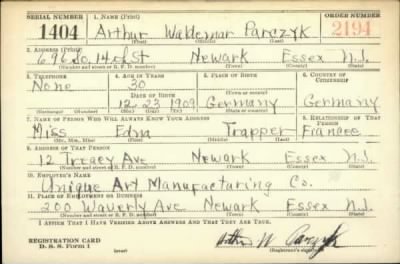 SERIAL NUMBER 1. NAME (Print) ORDER NUMBER
1404 Arthur Waldemar Parczyk 2194
(First) (Middle) (Last)
2. ADDRESS (Print)
696 So. 14th St Newark Essex N.J.
(Number and street or R. F. D. number) (Town) (County) (State)
3. TELEPHONE 4. AGE IN YEARS 5. PLACE OF BIRTH 6. COUNTRY OF CITIZENSHIP
None 30
DATE OF BIRTH
12 23 1909 Germany Germany
(Exchange) (Number) (Mo.) (Day) (Yr.) (State or country)
7. NAME OF PERSON WHO WILL ALWAYS KNOW YOUR ADDRESS 8. RELATIONSHIP OF THAT PERSON
Miss Edna Trapper Francee
(Mr., Mrs., Miss) (First) (Middle) (Last)
9. ADDRESS OF THAT PERSON
12 Treacy Ave Newark Essex N.J.
(Number and street or R. F. D. number) (Town) (County) (State)
10. EMPLOYER'S NAME
Unique Art Manufacturing Co.
11. PLACE OF EMPLOYMENT OR BUSINESS
200 Waverly Ave Newark Essex N.J.
(Number and street or R. F. D. number) (Town) (County) (State)
I AFFIRM THAT I HAVE VERIFIED ABOVE ANSWERS AND THAT THEY ARE TRUE.
REGISTRATION CARD
D. S. S. Form 1 (over) Arthur W Parczyk